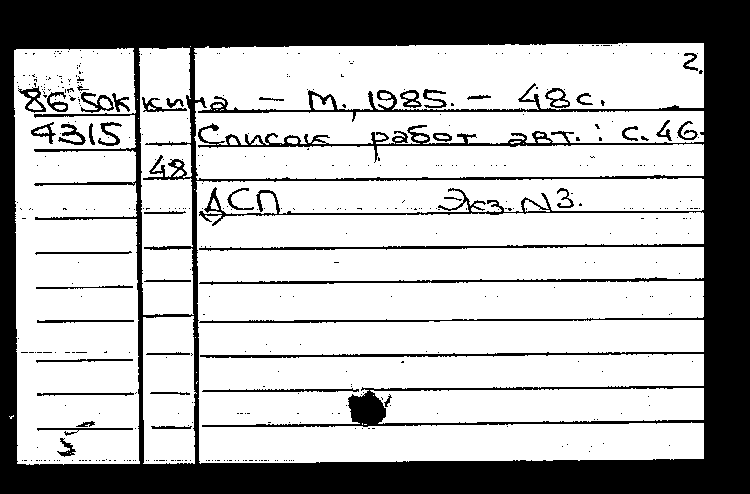 2.
86-50к кина. – М., 1985. – 48 с.
4315 Список работ авт.: с. 46-
48
ДСП. Экз. N3.
5